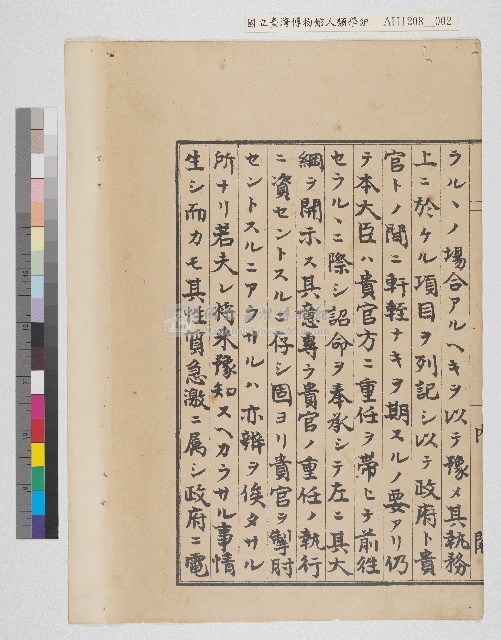 國立臺灣博物館人類學組 AH11208__002
ラルヽノ場合アルヘキヲ以テ豫メ其執務
上ニ於ケル項目ヲ列記シ以テ政府ト貴
官トノ間ニ軒輊ナキヲ期スルノ要アリ仍
テ本大臣ハ貴官方ニ重任ヲ帶ヒテ前徃
セラルヽニ際シ詔命ヲ奉承シテ左ニ其大
綱ヲ開示ス其意專ラ貴官ノ重任ノ執行
ニ資セントスルニ仔シ固ヨリ貴官ヲ掣肘
セントスルニアラサルハ亦辯ヲ俟タサル
所ナリ若夫レ將来豫知スヘカラサル事情
生シ而カモ其性質急激ニ属シ政府ニ電
内閣